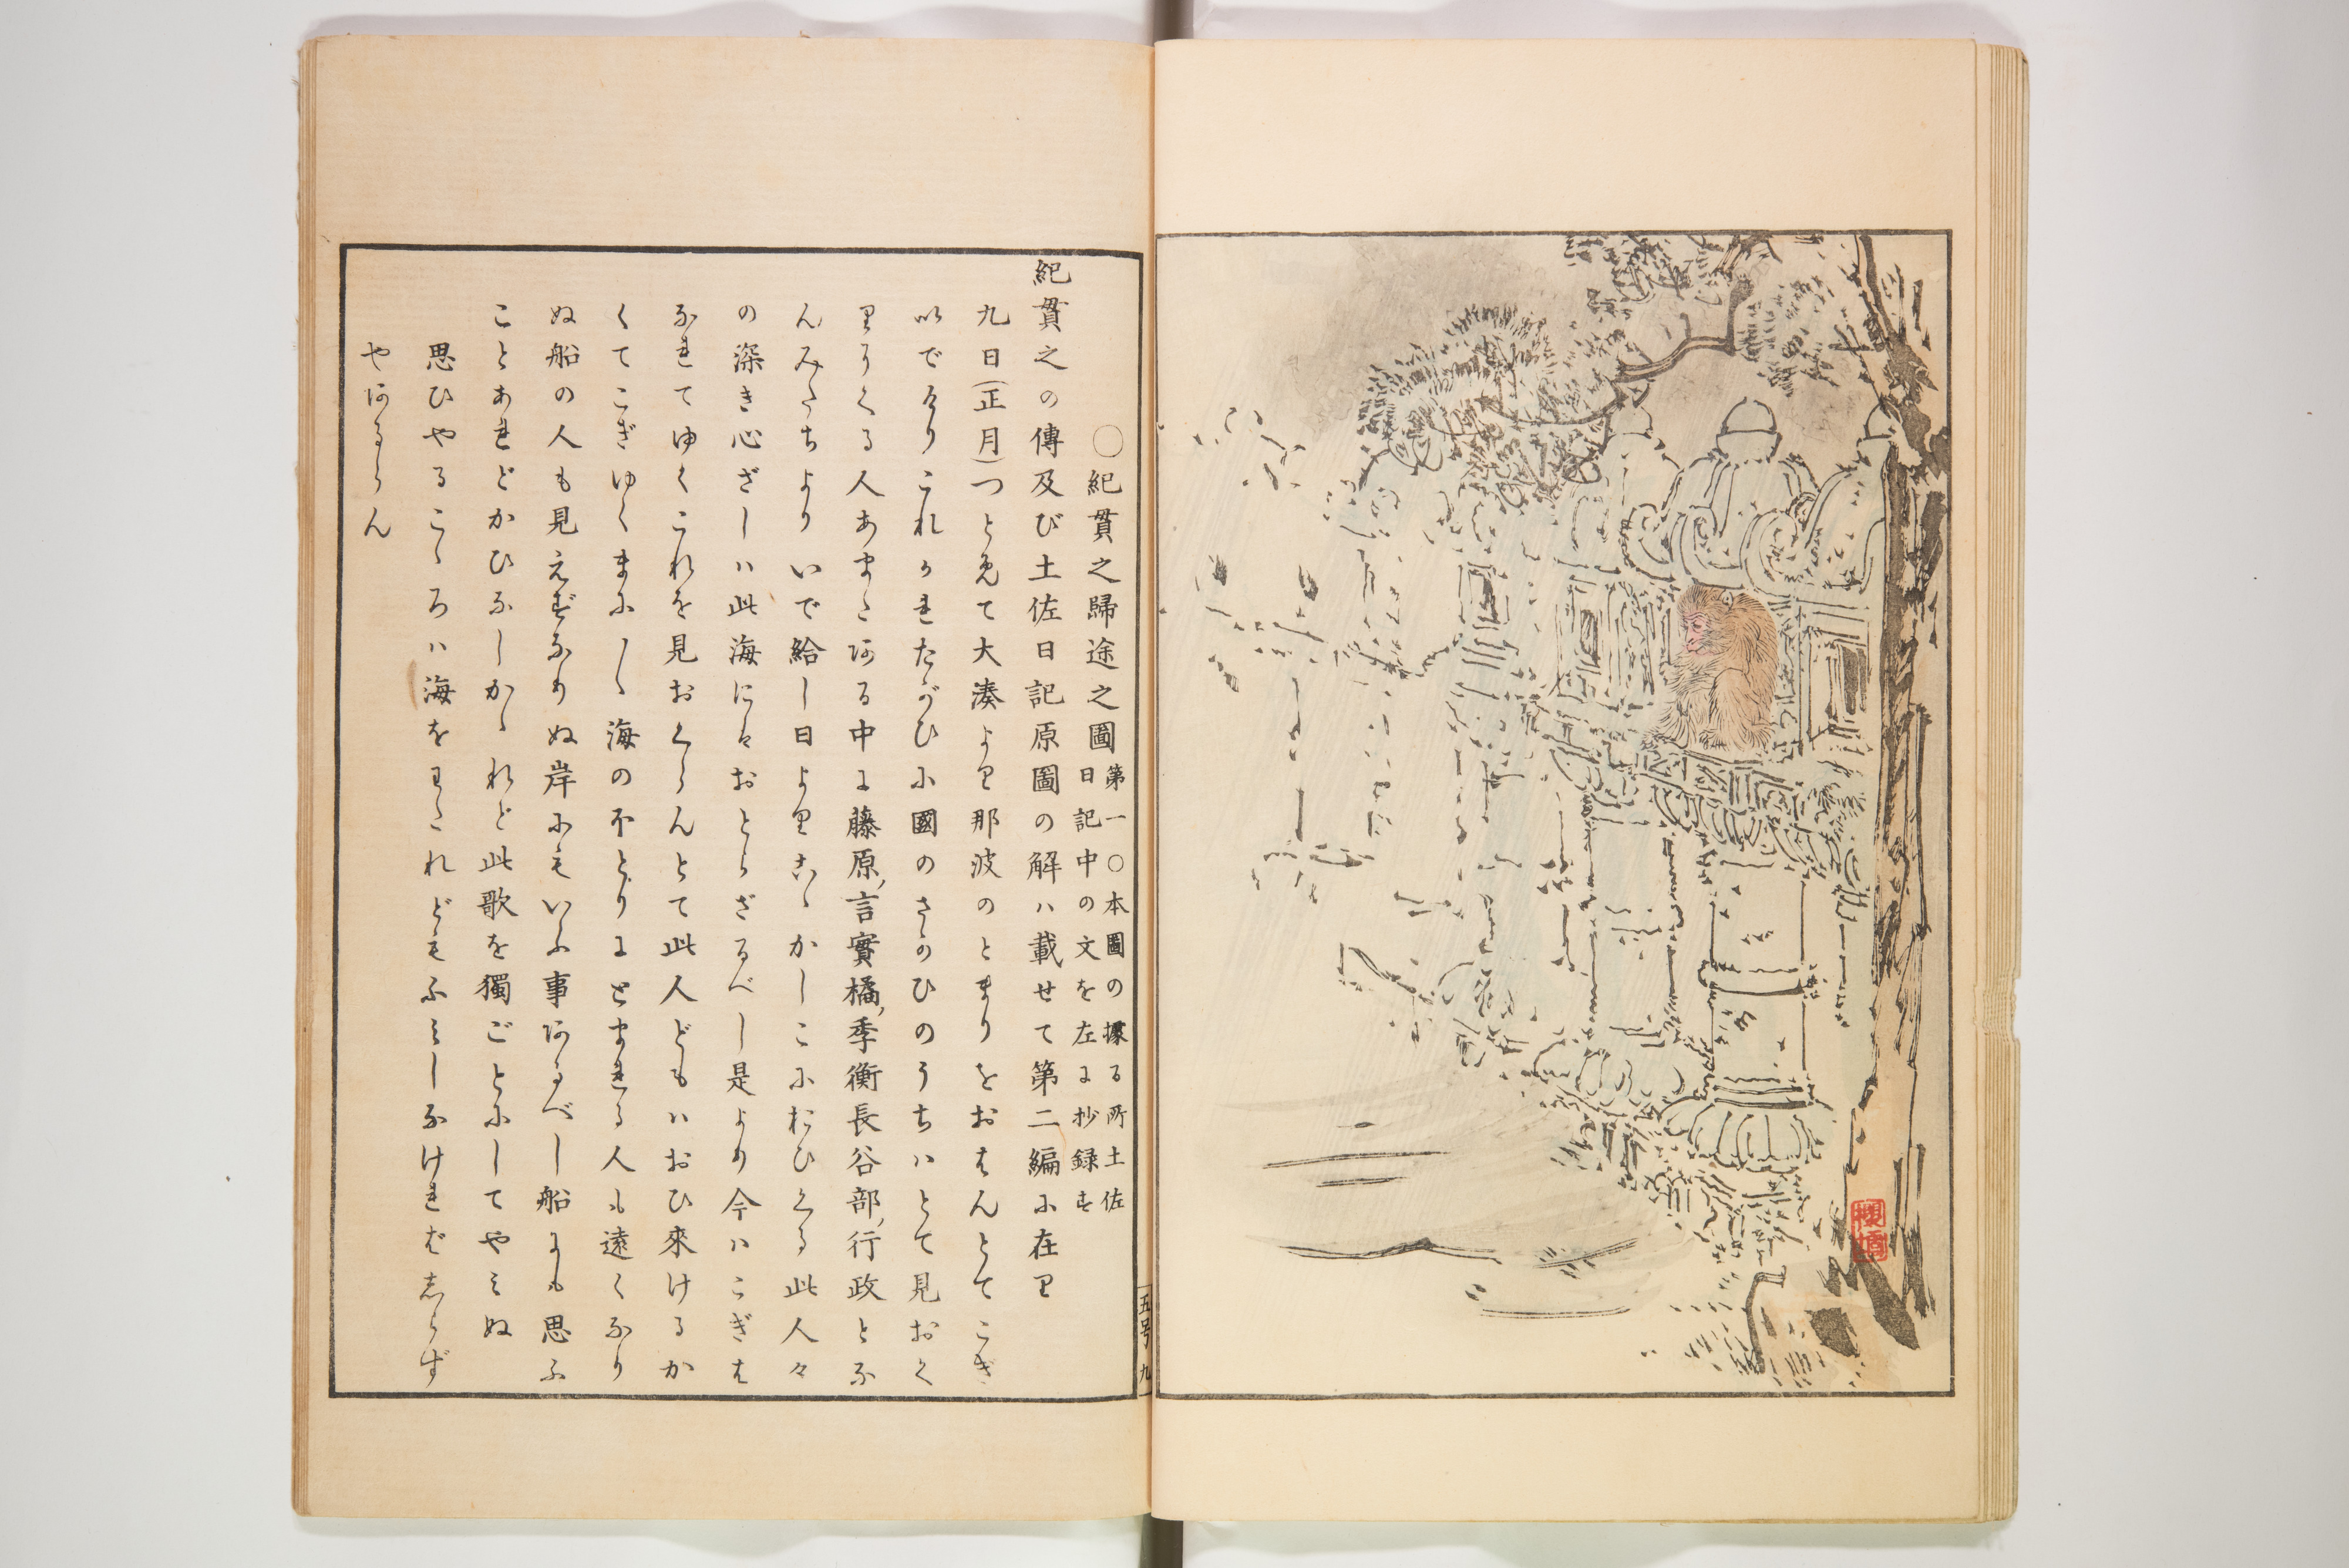 〇紀貫之歸途之圖
第一〇本圖の據る所土佐
日記中の文を左に抄録す
紀貫之の傳及び土佐日記原圖の解ハ載せて第二編に在り
九日(正月)つとめて大湊より那波のとまりをおはんとてこぎ
いでけりこれかれたがひに國のさかひのうちハとて見おく
りにくる人あまたある中に藤原,言實橘,季衡長谷部,行政とな
んみたちよりいで給し日よりこゝかしこにおひくる此人々
の深き心ざしハ此海にもおとらざるべし是より今ハこぎは
なれてゆくこれを見おくらんとて此人どもハおひ來けるか
くてこぎゆくまに〳〵海のほとりにとまれる人も遠くなり
ぬ船の人も見えずなりぬ岸にもいふ事あるべし船にも思ふ
ことあれどかひなしかゝれど此歌を獨ごとにしてやみぬ
思ひやるこゝろハ海をわたれどもふみしなければしらず
やあるらん
五号 九